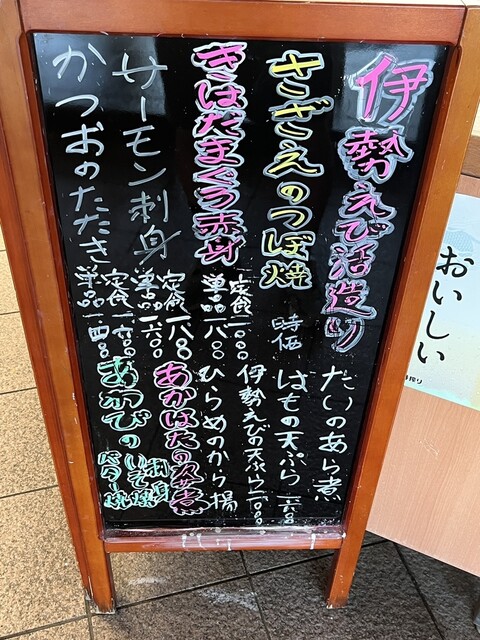 伊勢えび活造り
さざえのつぼ焼 時価
きはだまぐろ赤身
定食 二〇〇〇
単品 一八〇〇
サーモン刺身
定食 一八〇〇
単品 一六〇〇
かつおのたたき
定食 一六〇〇
単品 一四〇〇
たいのあら煮
はもの天ぷら 一六〇〇
伊勢えびの天ぷら 二〇〇〇
ひらめのから揚
あかはたの姿煮
あわびの
刺身
いそ焼
バター焼
おいしい